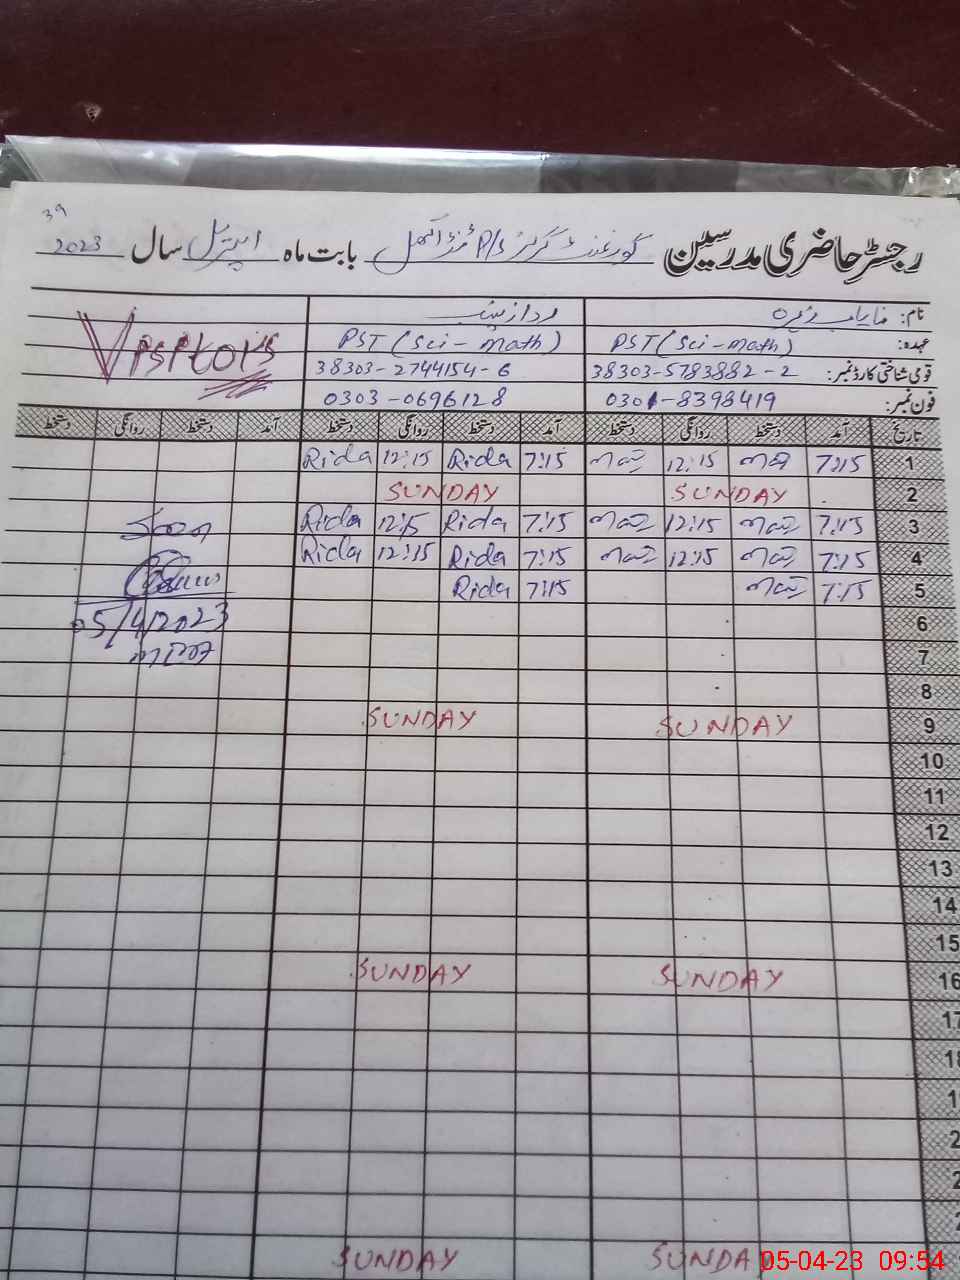 39
رجسٹر حاضری مدرسین گورنمنٹ گرلز P/S بابت ماہ اپریل سال 2023
نام:
عہدہ: PST (Sci-math) PST (Sci-math)
قومی شناختی کارڈ نمبر: 38303-5783882-2 38303-2744154-6
فون نمبر: 0301-8398419 0303-0696128
تاریخ آمد دستخط روانگی دستخط آمد دستخط روانگی دستخط آمد دستخط روانگی دستخط
1 7:15 12:15 7:15 Rida 12:15 Rida
2 SUNDAY SUNDAY
3 7:15 12:15 7:15 Rida 12:15 Rida
4 7:15 12:15 7:15 Rida 12:15 Rida
5 7:15 7:15 Rida
05/4/2023
6
7
8
9 SUNDAY SUNDAY
10
11
12
13
14
15
16 SUNDAY SUNDAY
17
18
SUNDAY SUNDA
05-04-23 09:54